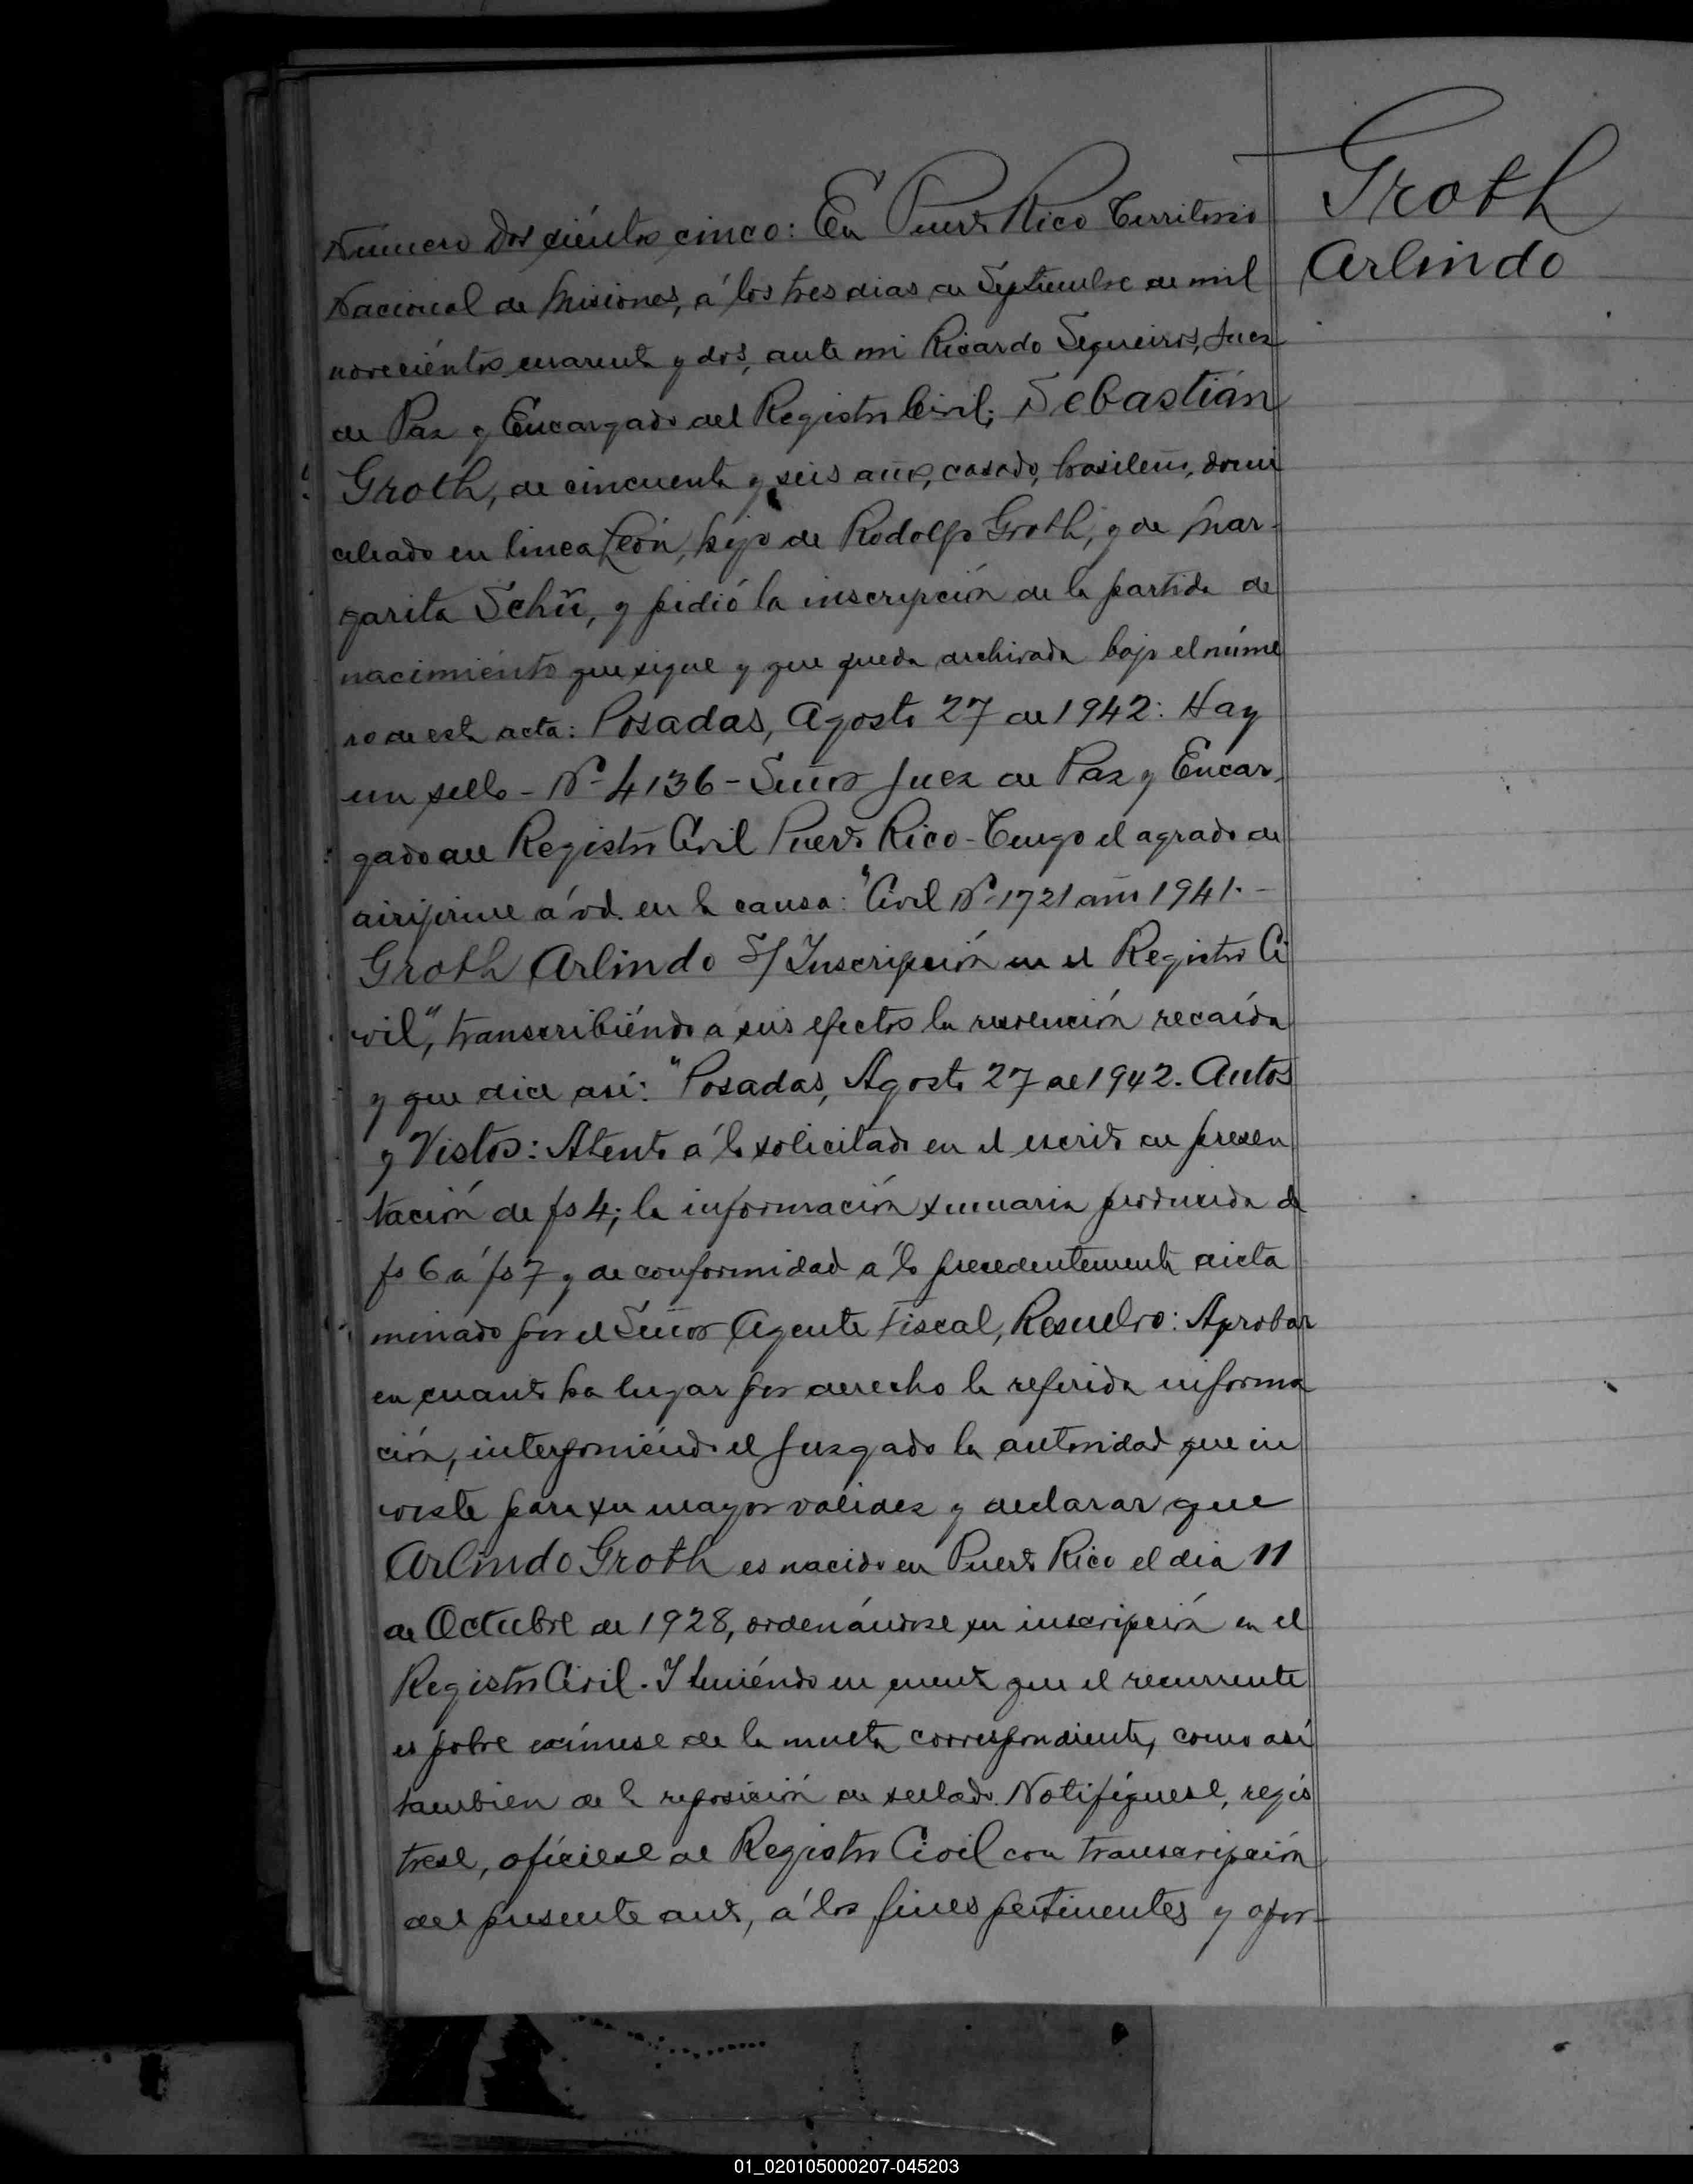 Groth
Arlindo
Número Dos ciéntos cinco: En Puerto Rico Territorio
Nacional de Misiones, á los tres dias de Septiembre de mil
noveciéntos cuarenta y dos, ante mi Ricardo Sequeiros, Juez
de Paz y Encargado del Registro Civil; Sebastián
Groth, de cincuenta y seis años, casado, brasileño, domi
ciliado en linea León, hijo de Rodolfo Groth, y de Mar-
garita Schü, y pidió la inscripción de la partida de
nacimiénto que sigue y que queda archivada bajo el núme
ro de esta acta: Posadas, Agosto 27 de 1942: Hay
un sello - Nº 4136 - Señor Juez de Paz y Encar-
gado del Registro Civil Puerto Rico - Tengo el agrado de
dirijirme á vd. en la causa: "Civil Nº 1721 año 1941.-
Groth Arlindo S/ Inscripción en el Registro Ci
vil", transcribiéndo a sus efectos la resolución recaída
y que dice así: "Posadas, Agosto 27 de 1942. Autos
y Vistos: Atento a lo solicitado en el escrito de presen
tación de fs 4; la información sumaria producida de
fs 6 á fs 7 y de conformidad a lo precedentemente dicta
minado por el Señor Agente Fiscal, Resuelvo: Aprobar
en cuanto ha lugar por derecho la referida informa
ción, interponiéndo el Juzgado la autoridad que in
viste para su mayor validez y declarar que
Arlindo Groth es nacido en Puerto Rico el dia 11
de Octubre de 1928, ordenándose su inscripción en el
Registro Civil. Y teniéndo en cuenta que el recurrente
es pobre exímese de la multa correspondiente, como así
tambien de la reposición de sellado. Notifíquese, regís
trese, ofíciese al Registro Civil con transcripción
del presente auto, á los fines pertinentes y opor-
01_020105000207-045203